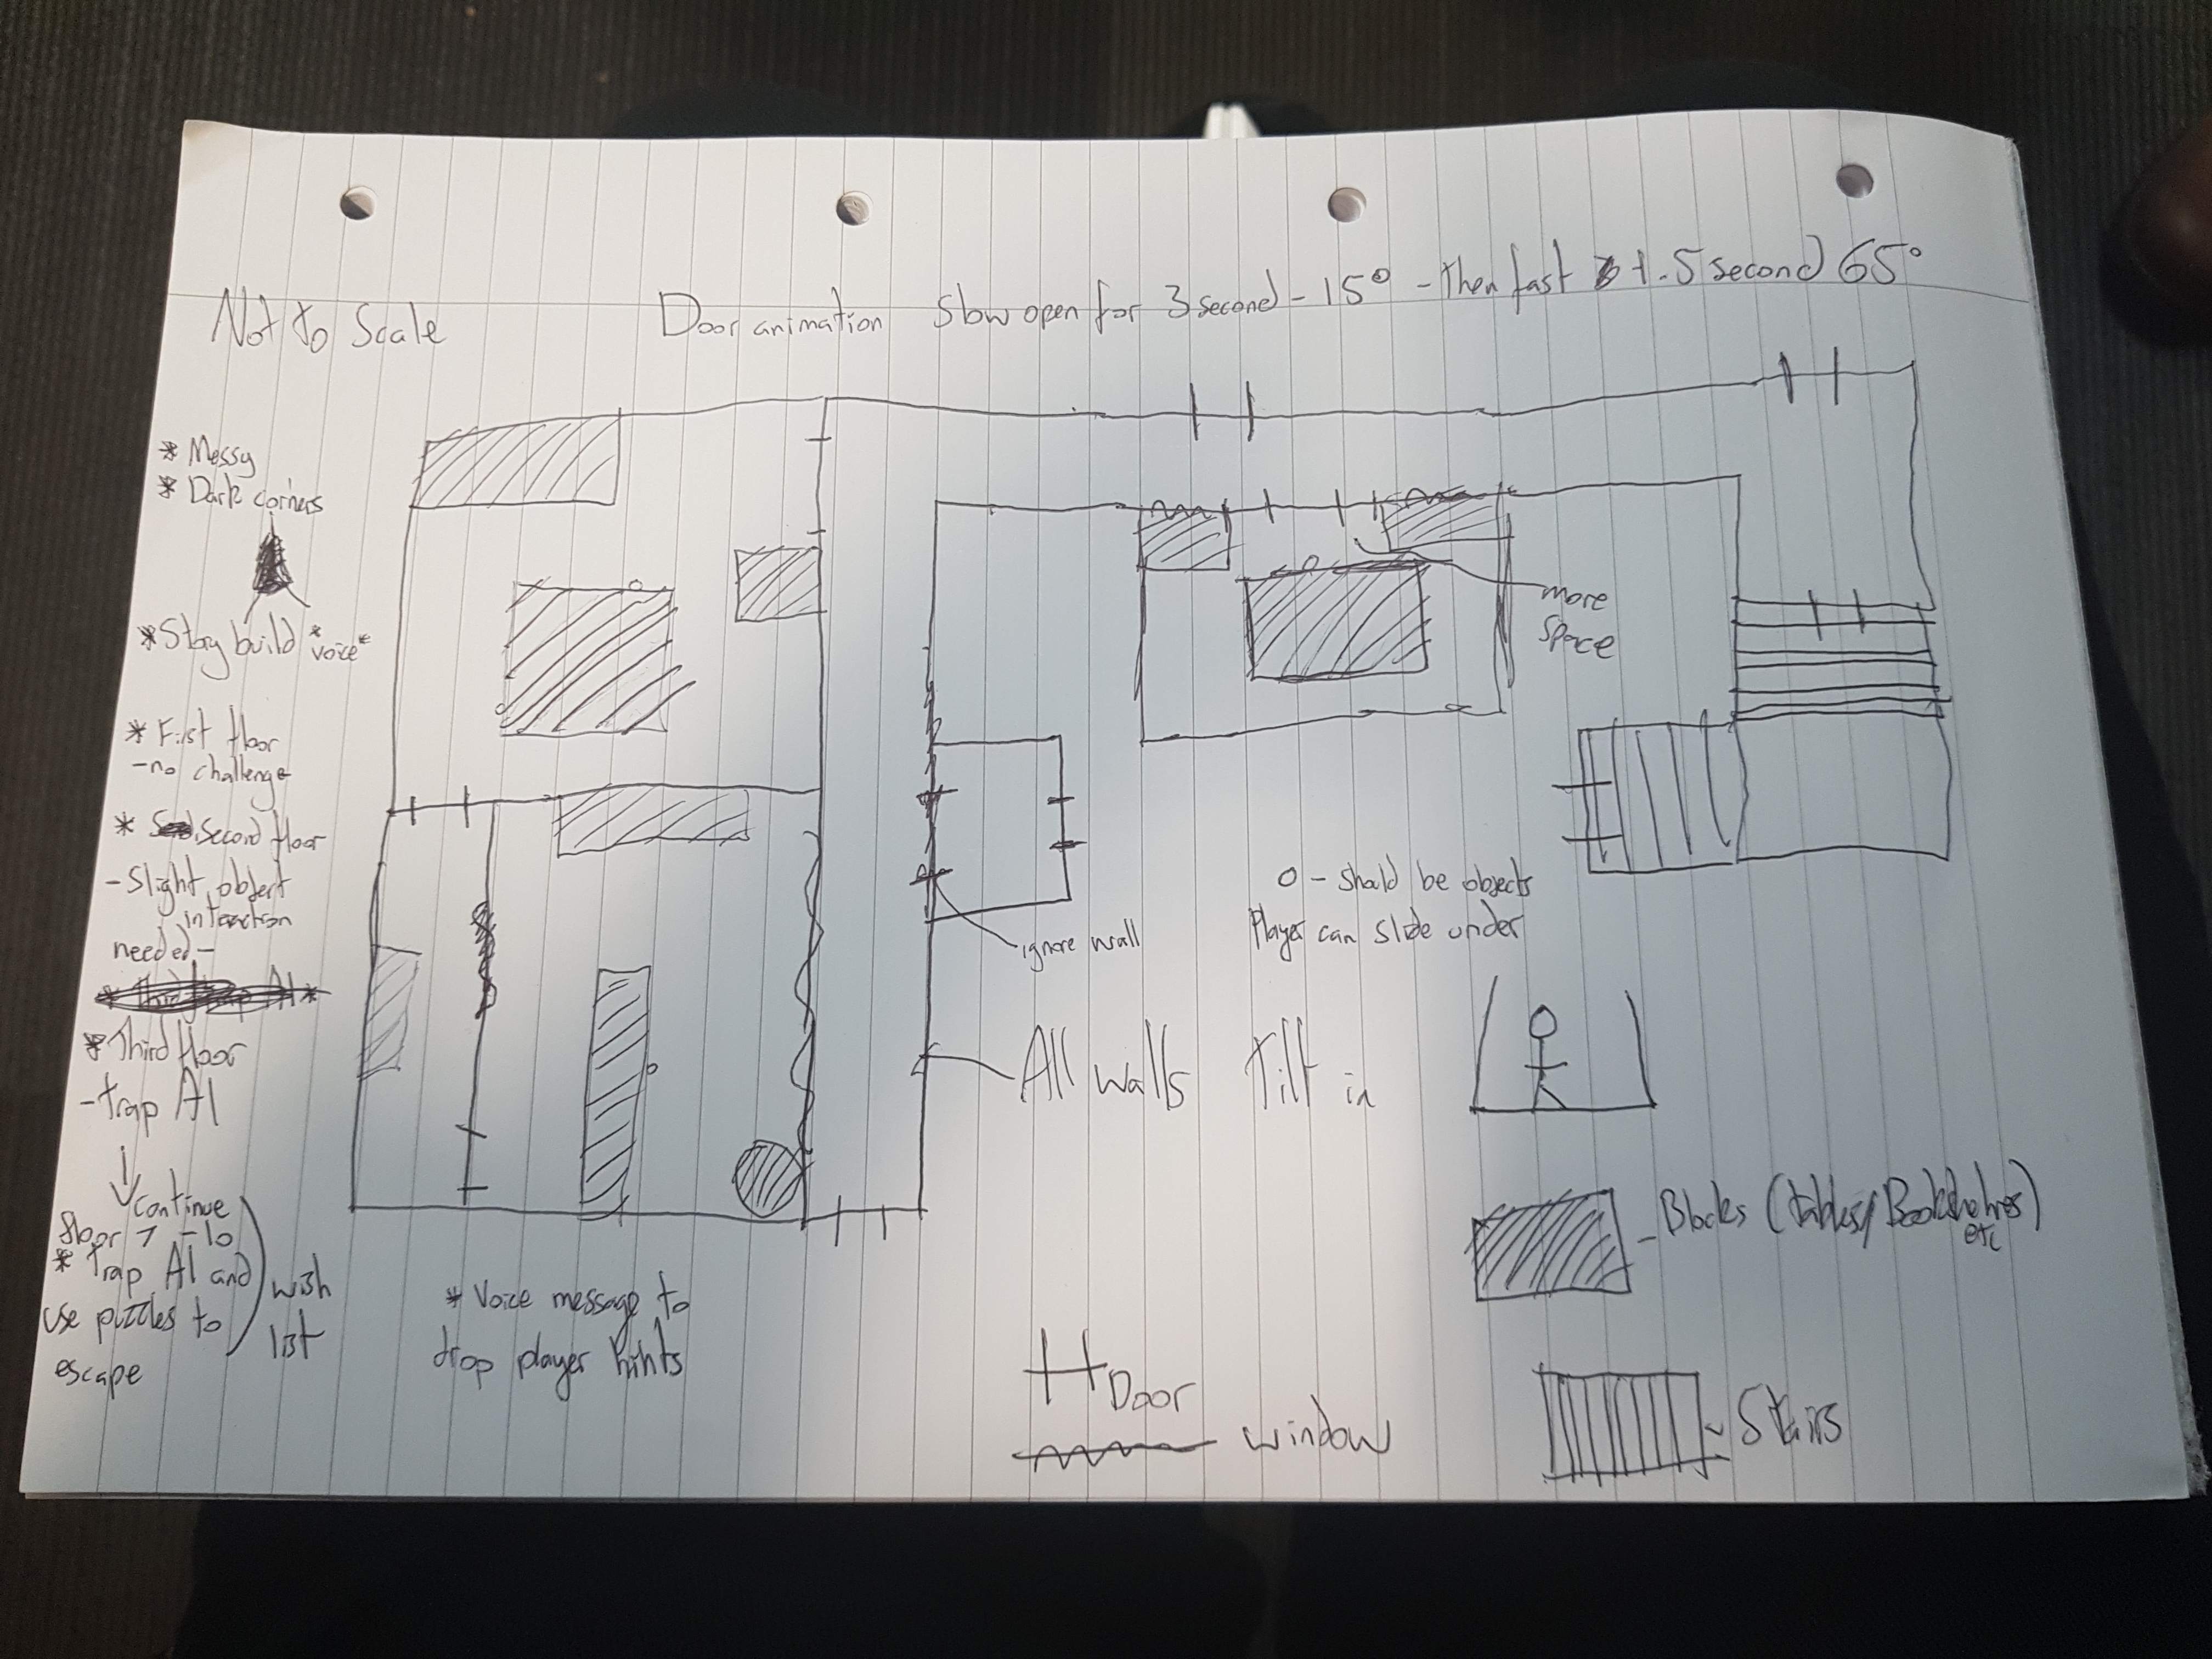 Not to Scale
Door animation slow open for 3 second - 15° - then fast 1.5 second 65°
* Messy
* Dark corners
* Stay build *voice*
* First floor
- no challenge
* Second floor
- Slight object
interaction
needed -
* Third floor
- trap AI
continue
floor 7 - 10
* trap AI and
use puzzles to
escape
wish
list
* Voice message to
drop player hints
more
space
ignore wall
O - Should be objects
Player can slide under
All walls tilt in
- Blocks (tables/Bookshelves)
etc
Door
window
Stairs